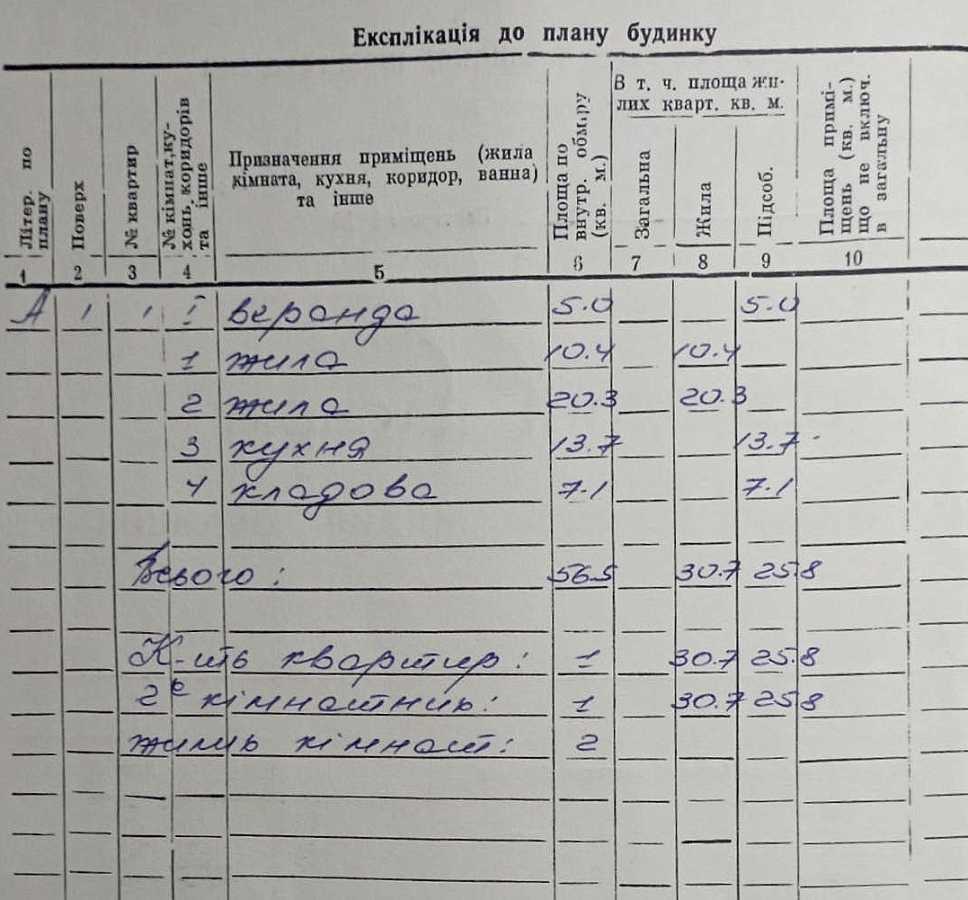 Експлікація до плану будинку
Літер. по плану
Поверх
№ квартир
№ кімнат, ку-
хонь, коридорів
та інше
Призначення приміщень (жила
кімната, кухня, коридор, ванна)
та інше
Площа по
внутр. обміру
(кв. м.)
В т. ч. площа жи-
лих кварт. кв. м.
Загальна
Жила
Підсоб.
Площа примі-
щень (кв. м.)
що не включ.
в загальну
1 2 3 4 5 6 7 8 9 10
А 1 1 I веранда 5.0 5.0
1 жила 10.4 10.4
2 жила 20.3 20.3
3 кухня 13.7 13.7
4 кладова 7.1 7.1
Всього: 56.5 30.7 25.8
К-ить квартир: 1 30.7 25.8
2е кімнатних: 1 30.7 25.8
жилих кімнат: 2